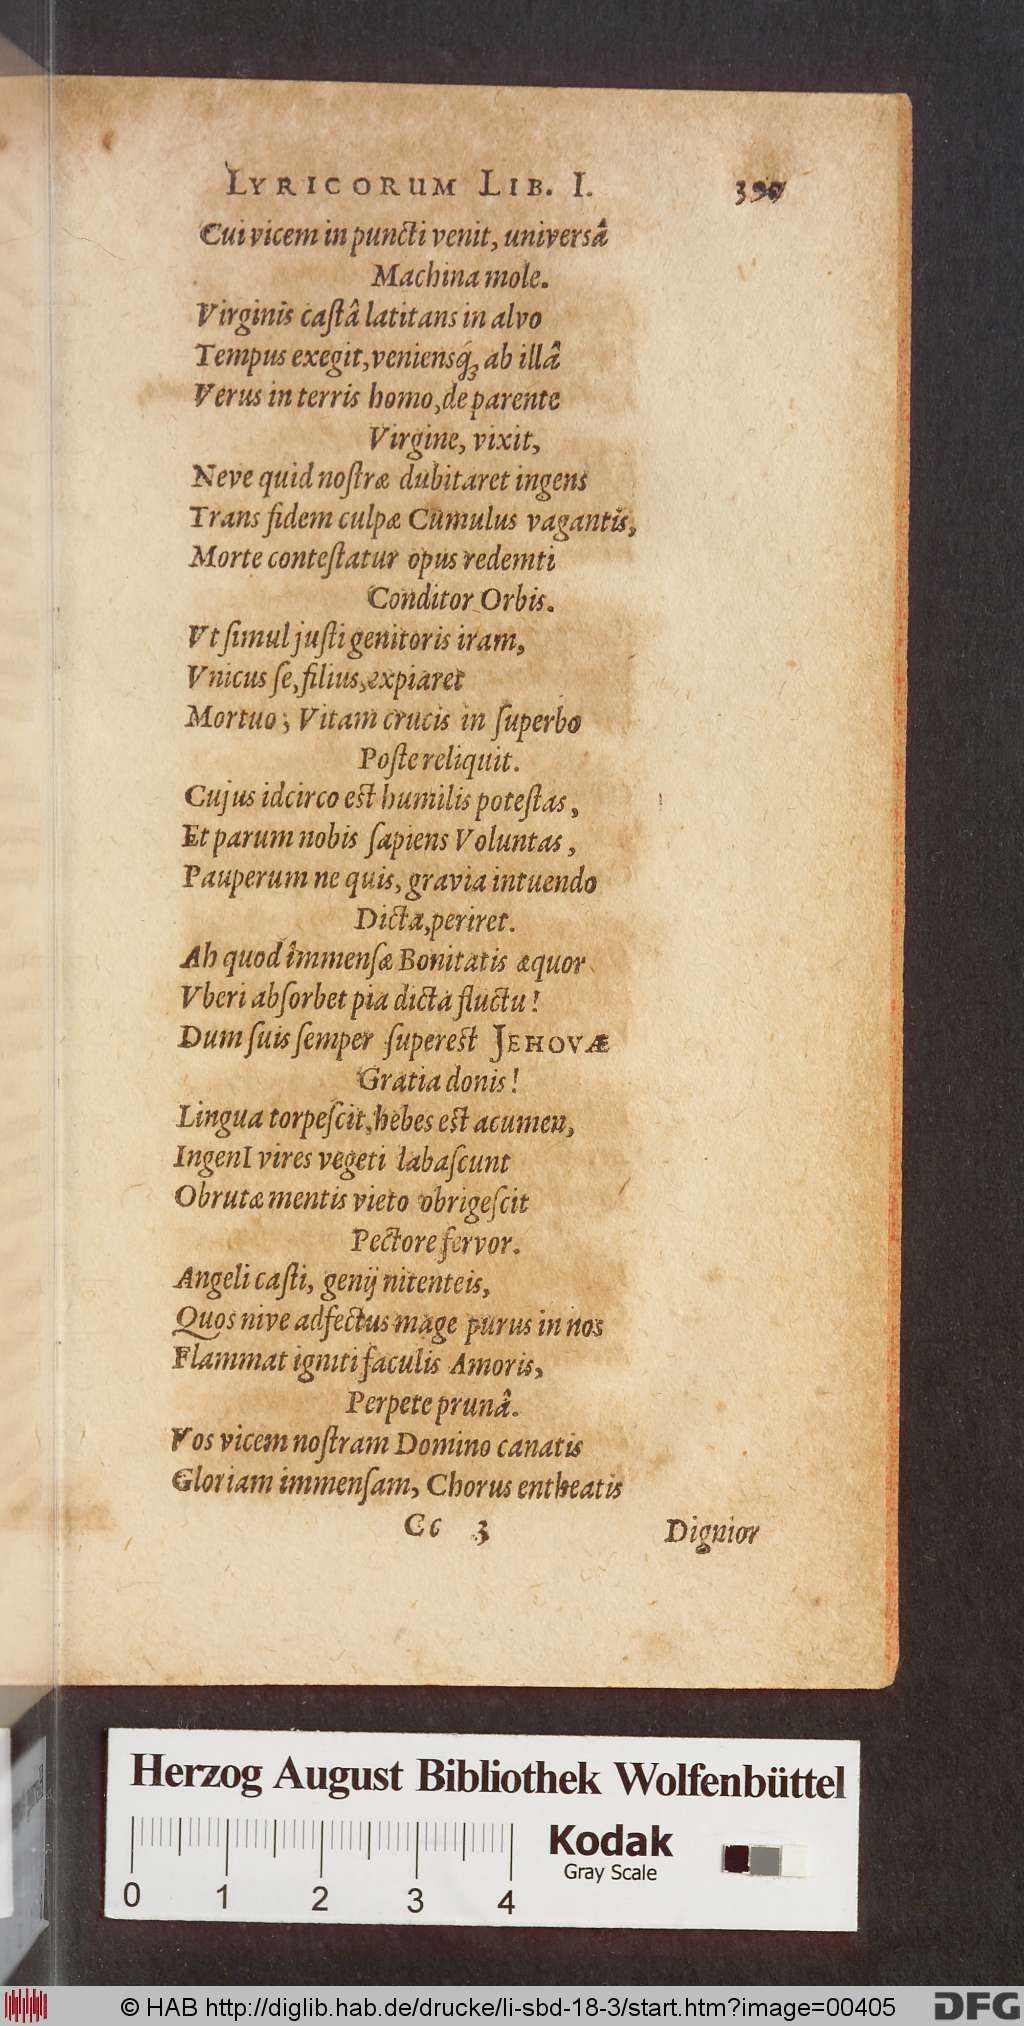 LYRICORUM LIB. I.
Cui vicem in puncti venit, universâ
Machina mole.
Virginis castâ latitans in alvo
Tempus exegit, veniensq́ꝫ ab illâ
Verus in terris homo, de parente
Virgine, vixit,
Neve quid nostræ dubitaret ingens
Trans fidem culpæ Cumulus vagantis,
Morte contestatur opus redemti
Conditor Orbis.
Vt simul justi genitoris iram,
Vnicus se, filius, expiaret
Mortuo; Vitam crucis in superbo
Poste reliquit.
Cujus idcirco est humilis potestas,
Et parum nobis sapiens Voluntas,
Pauperum ne quis, gravia intuendo
Dicta, periret.
Ah quod immensæ Bonitatis æquor
Vberi absorbet pia dicta fluctu!
Dum suis semper superest JEHOVÆ
Gratia donis!
Lingua torpescit, hebes est acumen,
IngenI vires vegeti labascunt
Obrutæ mentis vieto obrigescit
Pectore fervor.
Angeli casti, genij nitenteis,
Quos nive adfectus mage purus in nos
Flammat igniti faculis Amoris,
Perpete prunâ.
Vos vicem nostram Domino canatis
Gloriam immensam, Chorus entheatis
Cc 3 Dignior
Herzog August Bibliothek Wolfenbüttel
Kodak
Gray Scale
0 1 2 3 4
© HAB http://diglib.hab.de/drucke/li-sbd-18-3/start.htm?image=00405
DFG